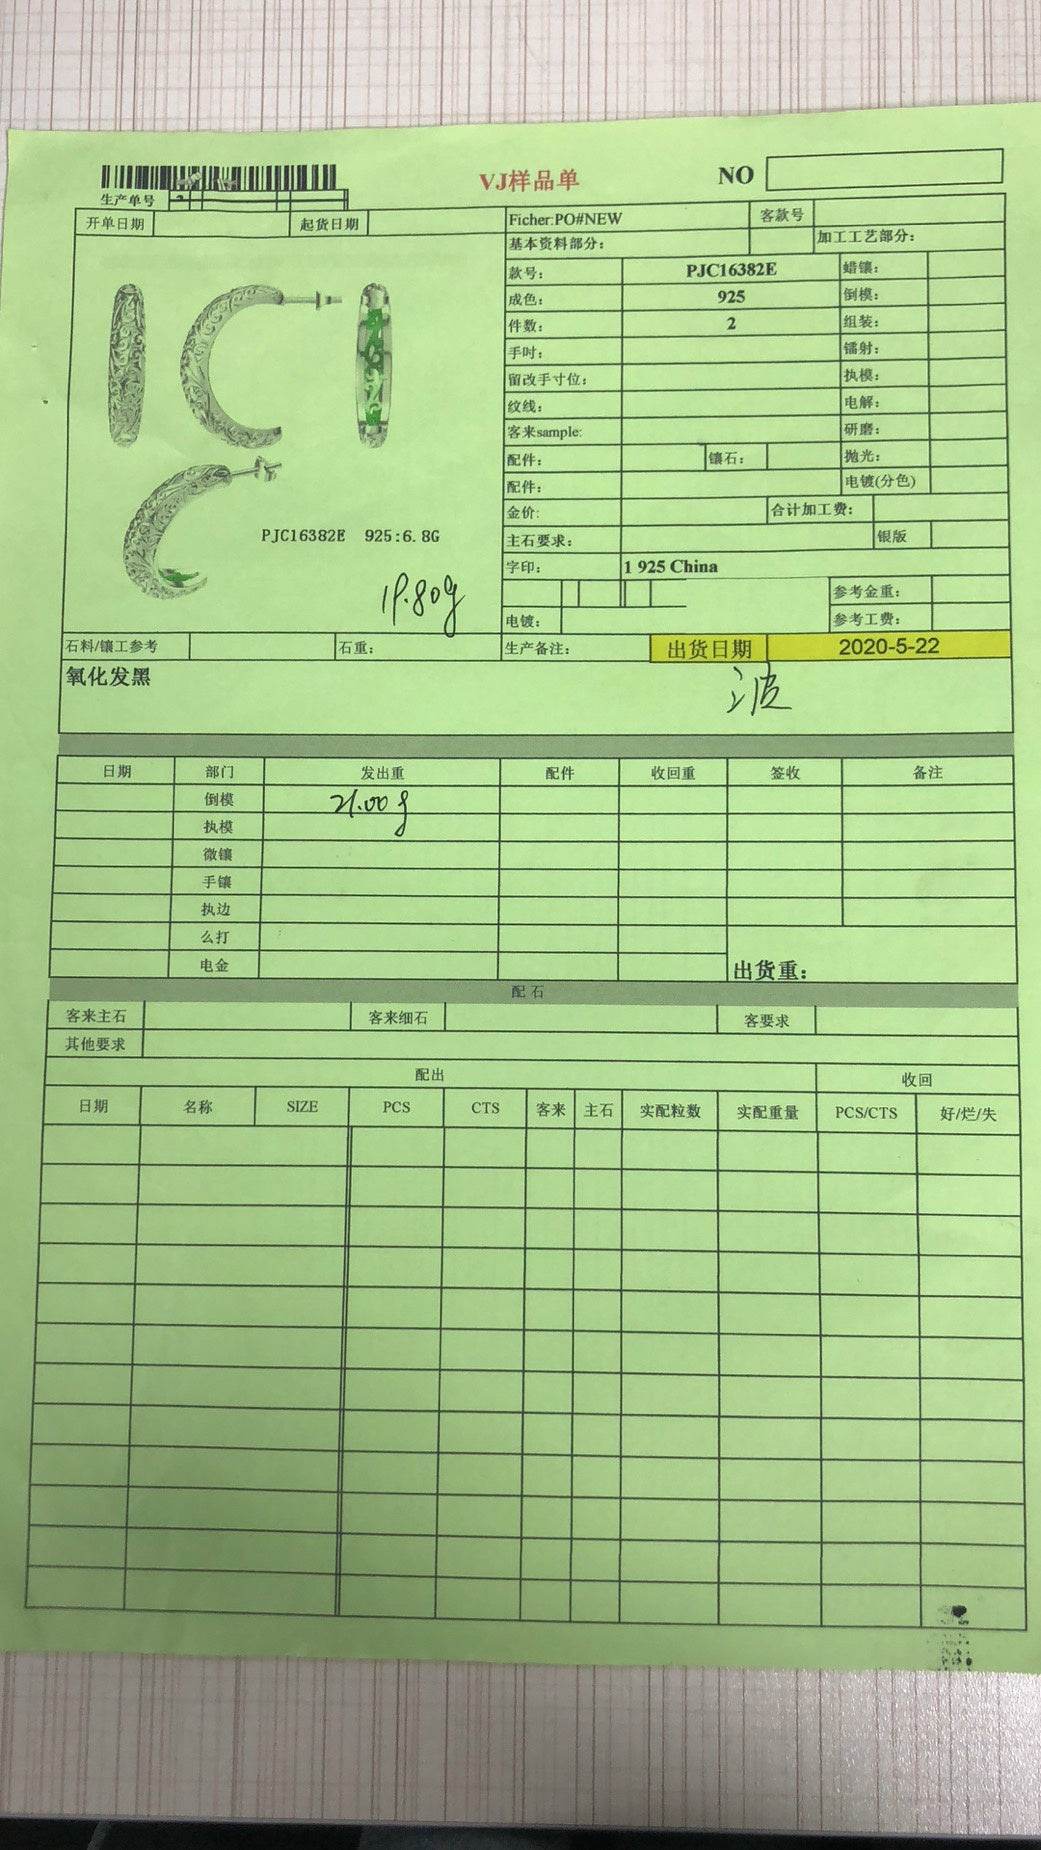 VJ样品单
NO
生产单号
开单日期 起货日期 Ficher:PO#NEW 客款号
基本资料部分: 加工工艺部分:
款号: PJC16382E 蜡镶:
成色: 925 倒模:
件数: 2 组装:
手吋: 镭射:
留改手寸位: 执模:
纹线: 电解:
客来sample: 研磨:
配件: 镶石: 抛光:
配件: 电镀(分色)
金价: 合计加工费:
主石要求: 银版
PJC16382E 925:6.8G
字印: 1 925 China
19.80g
参考金重:
电镀: 参考工费:
石料/镶工参考 石重: 生产备注: 出货日期 2020-5-22
氧化发黑
波
日期 部门 发出重 配件 收回重 签收 备注
倒模 21.00g
执模
微镶
手镶
执边
么打
电金 出货重:
配石
客来主石 客来细石 客要求
其他要求
配出 收回
日期 名称 SIZE PCS CTS 客来 主石 实配粒数 实配重量 PCS/CTS 好/烂/失